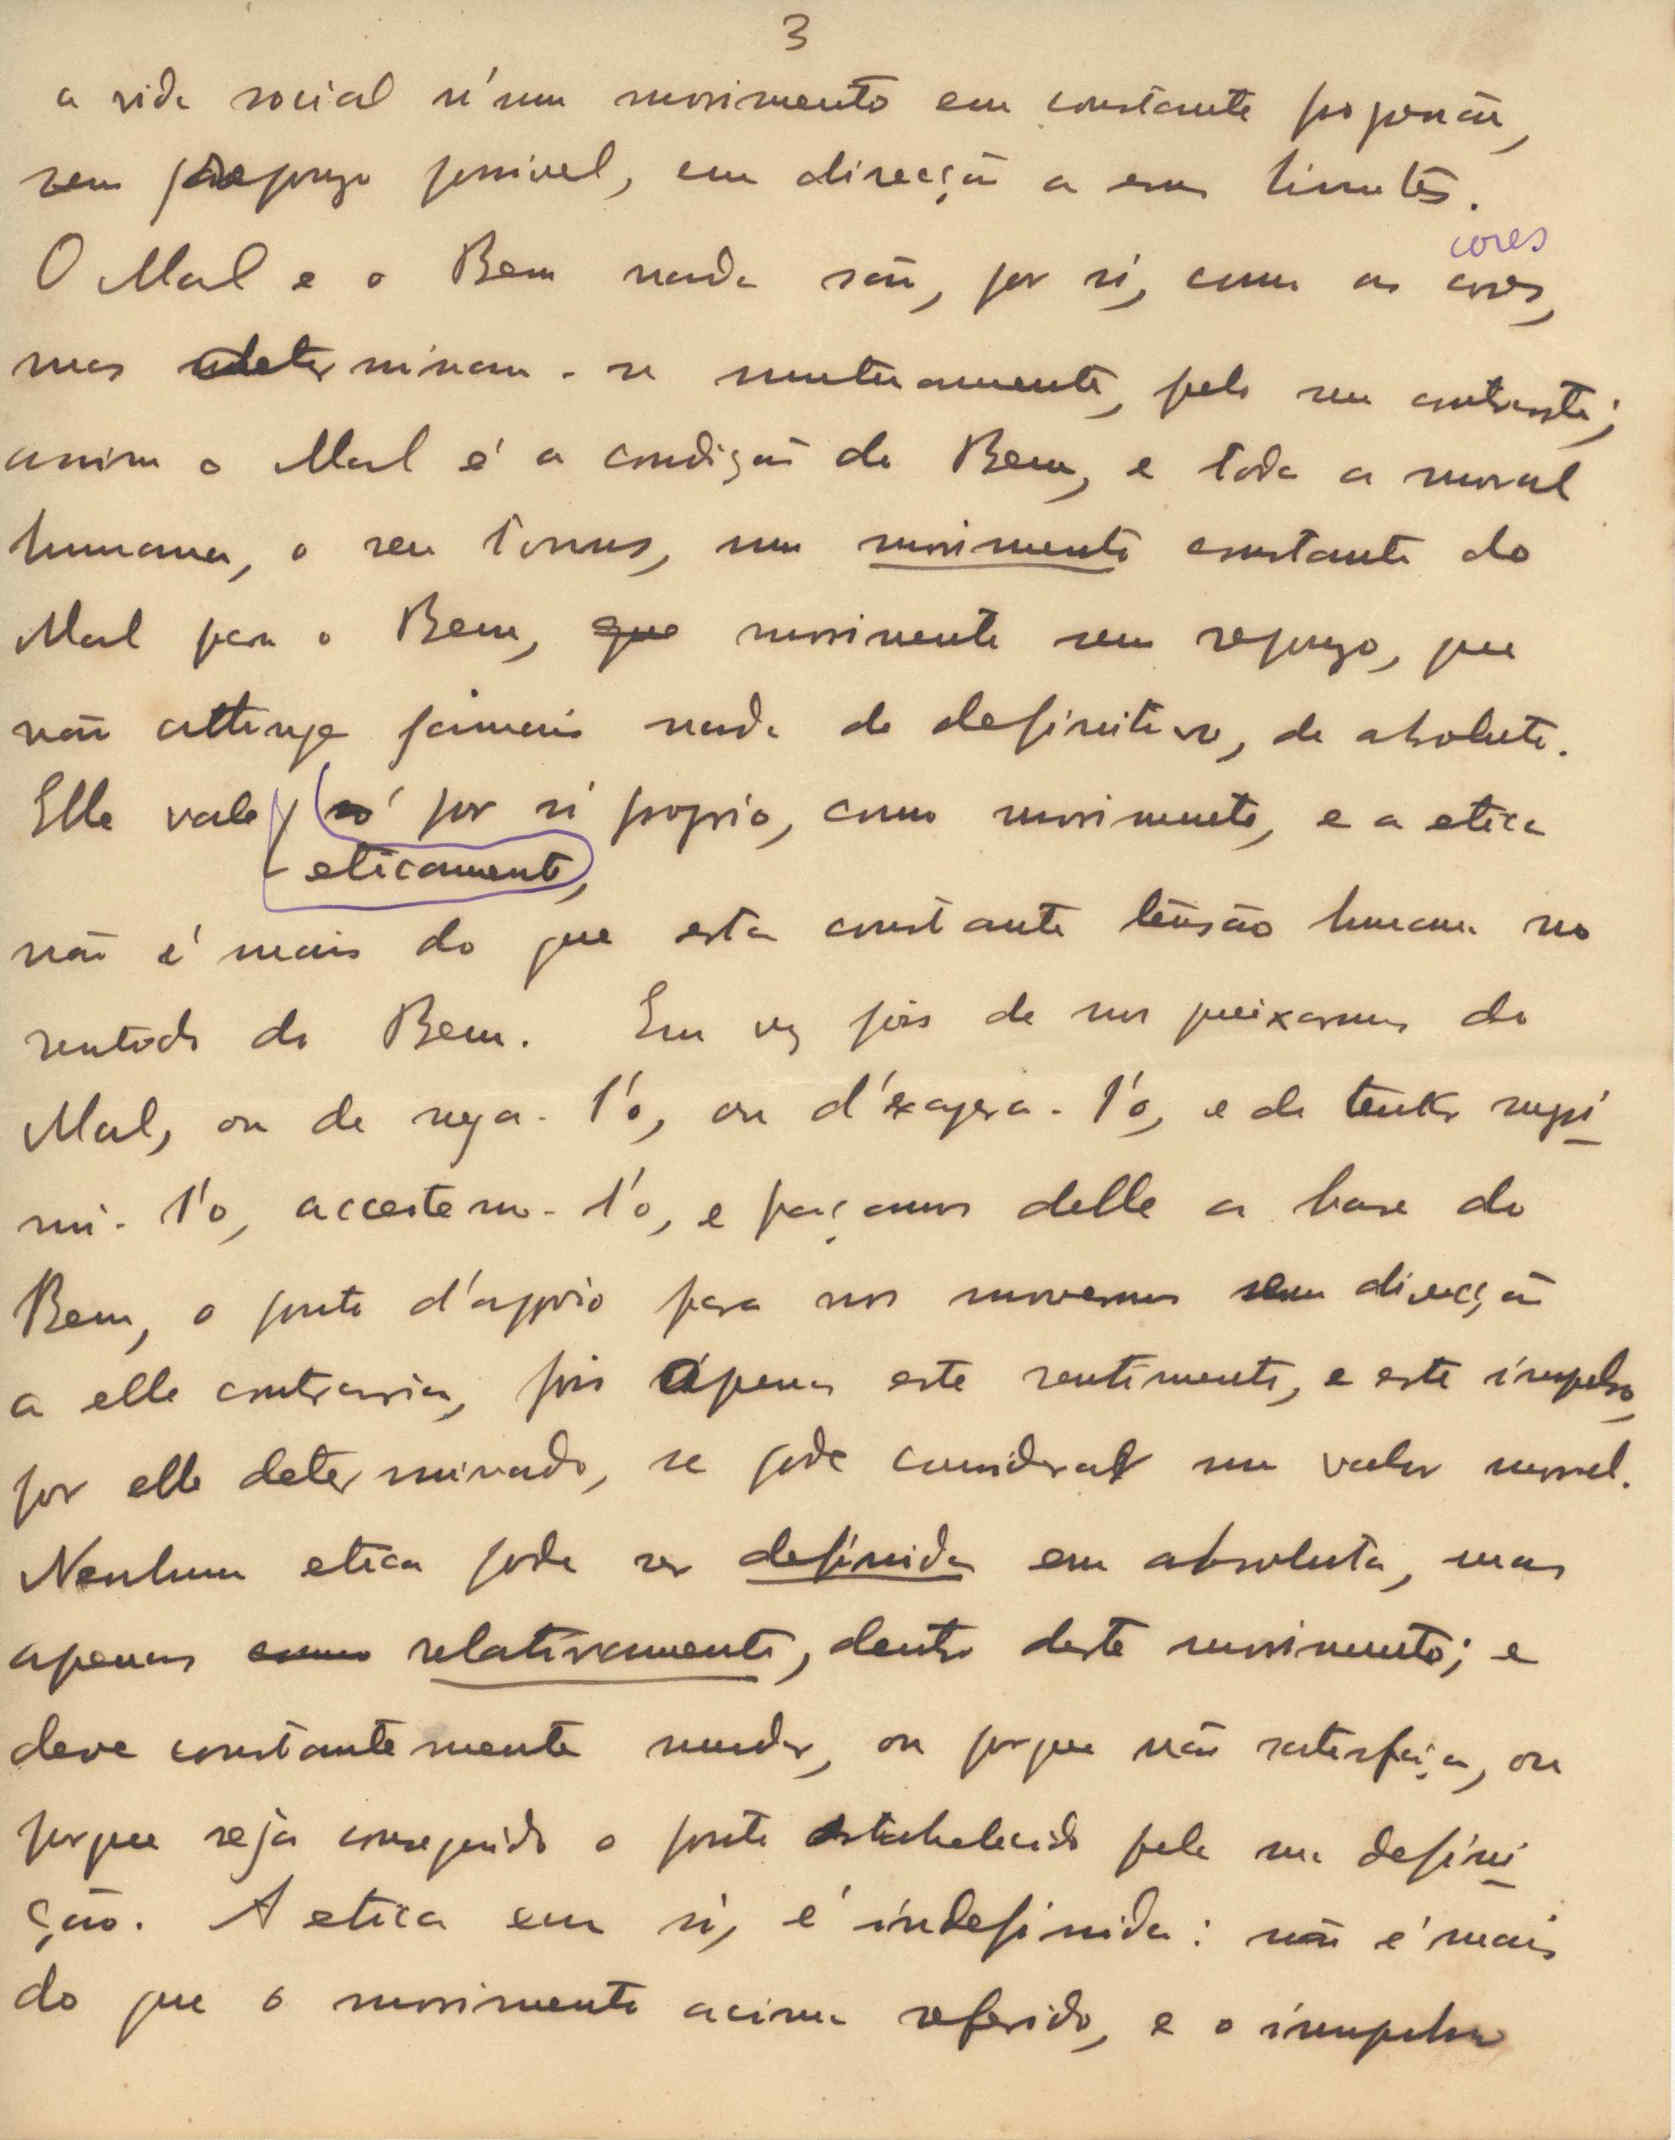 3
a vida social n'um movimento em constante
sem repouzo possivel, em direcção a esses limites.
cores
O Mal e o Bem nada são, por si, como as cores,
mas determinam-se mutuamente, pelo seu contraste;
assim o Mal é a condição do Bem, e toda a moral
humana, o seu tonus, um movimento constante do
Mal para o Bem, que movimento sem repouzo, que
não attinge jamais nada de definitivo, de absoluto.
Elle vale, só por si proprio, como movimento, e a etica
eticamente,
não é mais do que esta constante tensão humana no
sentido do Bem. Em vez pois de nos queixarmos do
Mal, ou de nega-l'o, ou d'exagera-l'o, e de tentar supri
mi-l'o, acceitemo-l'o, e façamos delle a base do
Bem, o ponto d'appoio para nos movermos em direcção
a elle contraria, pois apenas este sentimento, e este impulso,
por elle determinado, se pode considerar um valor moral.
Nenhuma etica pode ser definida em absoluto, mas
apenas como relativamente, dentro deste movimento; e
deve constantemente mudar, ou porque não satisfaça, ou
porque seja conseguido o ponto estabelecido pela sua defini
ção. A etica em si, é indefinida: não é mais
do que o movimento acima referido, e o impulso